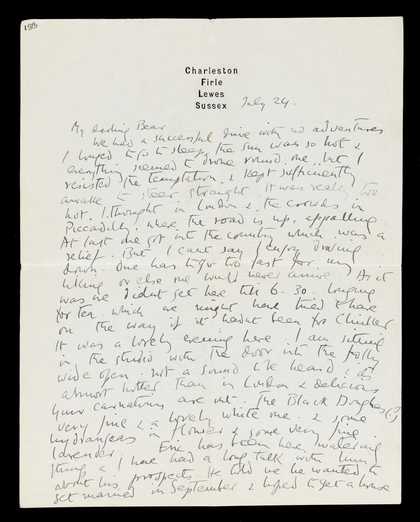 Charleston
Firle
Lewes
Sussex
July 24.
My darling Bear
We had a successful drive with no adventures
I longed to go to sleep, the sun was so hot &
everything seemed to drone round me, but I
resisted the temptation & kept sufficiently
awake to steer straight. It was really too
hot, I thought in London & the crowds in
Piccadilly, where the road is up, appalling.
At last one got into the country which was a
relief. But I can't say I enjoy driving
down. One has to go too fast for my
liking or else one would never arrive. As it
was we didn't get here till 6.30. longing
for tea which we might have tried to have
on the way if it hadn't been for Clinker
It was a lovely evening here. I am sitting
in the studio with the door into the folly
wide open. not a sound to be heard. It's
almost hotter than in London & delicious
Your carnations are out. The Black Douglas (?)
very fine & a lovely white one. & some
hydrangeas in flower & some very fine
lavender. Eric has been here watering
things & I have had a long talk with him
about his prospects. He told me he wanted to
get married in September & hoped to get a house